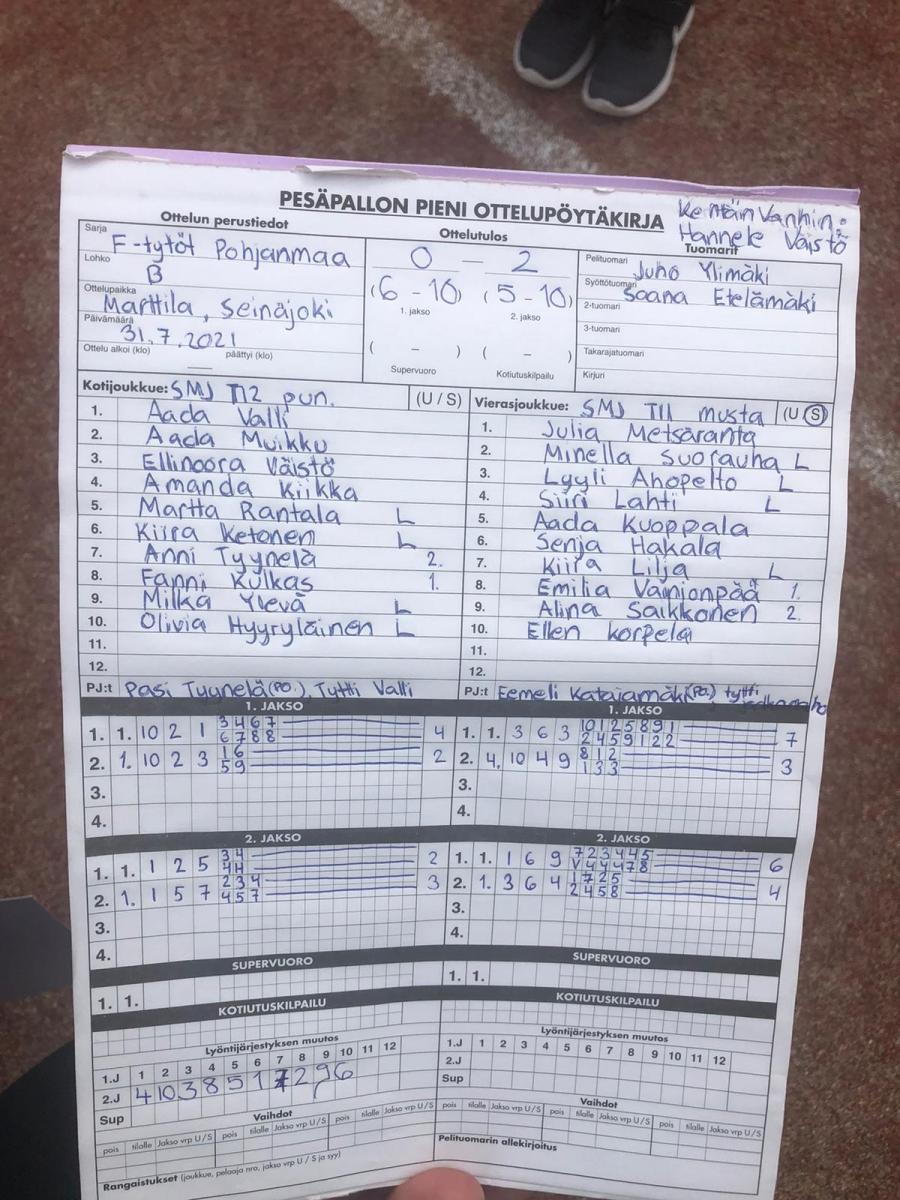 PESÄPALLON PIENI OTTELUPÖYTÄKIRJA
Kentän vanhin:
Hannele Väistö
Ottelun perustiedot
Sarja F-tytöt Pohjanmaa
Lohko B
Ottelupaikka Marttila, Seinäjoki
Päivämäärä 31.7.2021
Ottelu alkoi (klo) päättyi (klo)
Ottelutulos
0 — 2
(6 - 10) (5 - 10)
1. jakso 2. jakso
( - ) ( - )
Supervuoro Kotiutuskilpailu
Tuomarit
Pelituomari Juho Ylimäki
Syöttötuomari Saana Etelämäki
2-tuomari
3-tuomari
Takarajatuomari
Kirjuri
Kotijoukkue: SMJ T12 pun. (U / S)
1. Aada Valli
2. Aada Muikku
3. Ellinoora Väistö
4. Amanda Kiikka
5. Martta Rantala L
6. Kiira Ketonen L
7. Anni Tyynelä 2.
8. Fanni Kulkas 1.
9. Milka Ylevä L
10. Olivia Hyyryläinen L
11.
12.
PJ:t Pasi Tyynelä (PO.), Tytti Valli
Vierasjoukkue: SMJ T11 musta (U / S)
1. Julia Metsäranta
2. Minella Suorauha L
3. Lyyli Ahopelto L
4. Siiri Lahti L
5. Aada Kuoppala
6. Senja Hakala
7. Kiira Lilja L
8. Emilia Vainionpää 1.
9. Alina Saikkonen 2.
10. Ellen Korpela
11.
12.
PJ:t Eemeli Katajamäki (PO.) tytti
1. JAKSO
1. 1. 10 2 1 3 4 6 7 4
6 7 8 8
2. 1. 10 2 3 1 6 2
5 9
3.
4.
1. JAKSO
1. 1. 3 6 3 10 1 2 5 8 9 1 7
2 4 5 9 1 2 2
2. 4. 10 4 9 8 1 2 3
1 3 3
3.
4.
2. JAKSO
1. 1. 1 2 5 3 4 2
4 4
2. 1. 1 5 7 2 3 4 3
4 5 7
3.
4.
2. JAKSO
1. 1. 1 6 9 7 2 3 4 4 5 6
V 4 4 4 7 8
2. 1. 3 6 4 1 7 2 5 4
2 4 5 8
3.
4.
SUPERVUORO
1. 1.
SUPERVUORO
1. 1.
KOTIUTUSKILPAILU
KOTIUTUSKILPAILU
Lyöntijärjestyksen muutos
1 2 3 4 5 6 7 8 9 10 11 12
1.J
2.J 4 10 3 8 5 1 7 2 9 6
Sup
Vaihdot
pois tilalle Jakso vrp U / S pois tilalle Jakso vrp U / S pois tilalle Jakso vrp U / S
Rangaistukset (joukkue, pelaaja nro, jakso vrp U / S ja syy)
Lyöntijärjestyksen muutos
1.J 1 2 3 4 5 6 7 8 9 10 11 12
2.J
Sup
Vaihdot
pois tilalle Jakso vrp U / S pois tilalle Jakso vrp U / S pois tilalle Jakso vrp U / S
Pelituomarin allekirjoitus